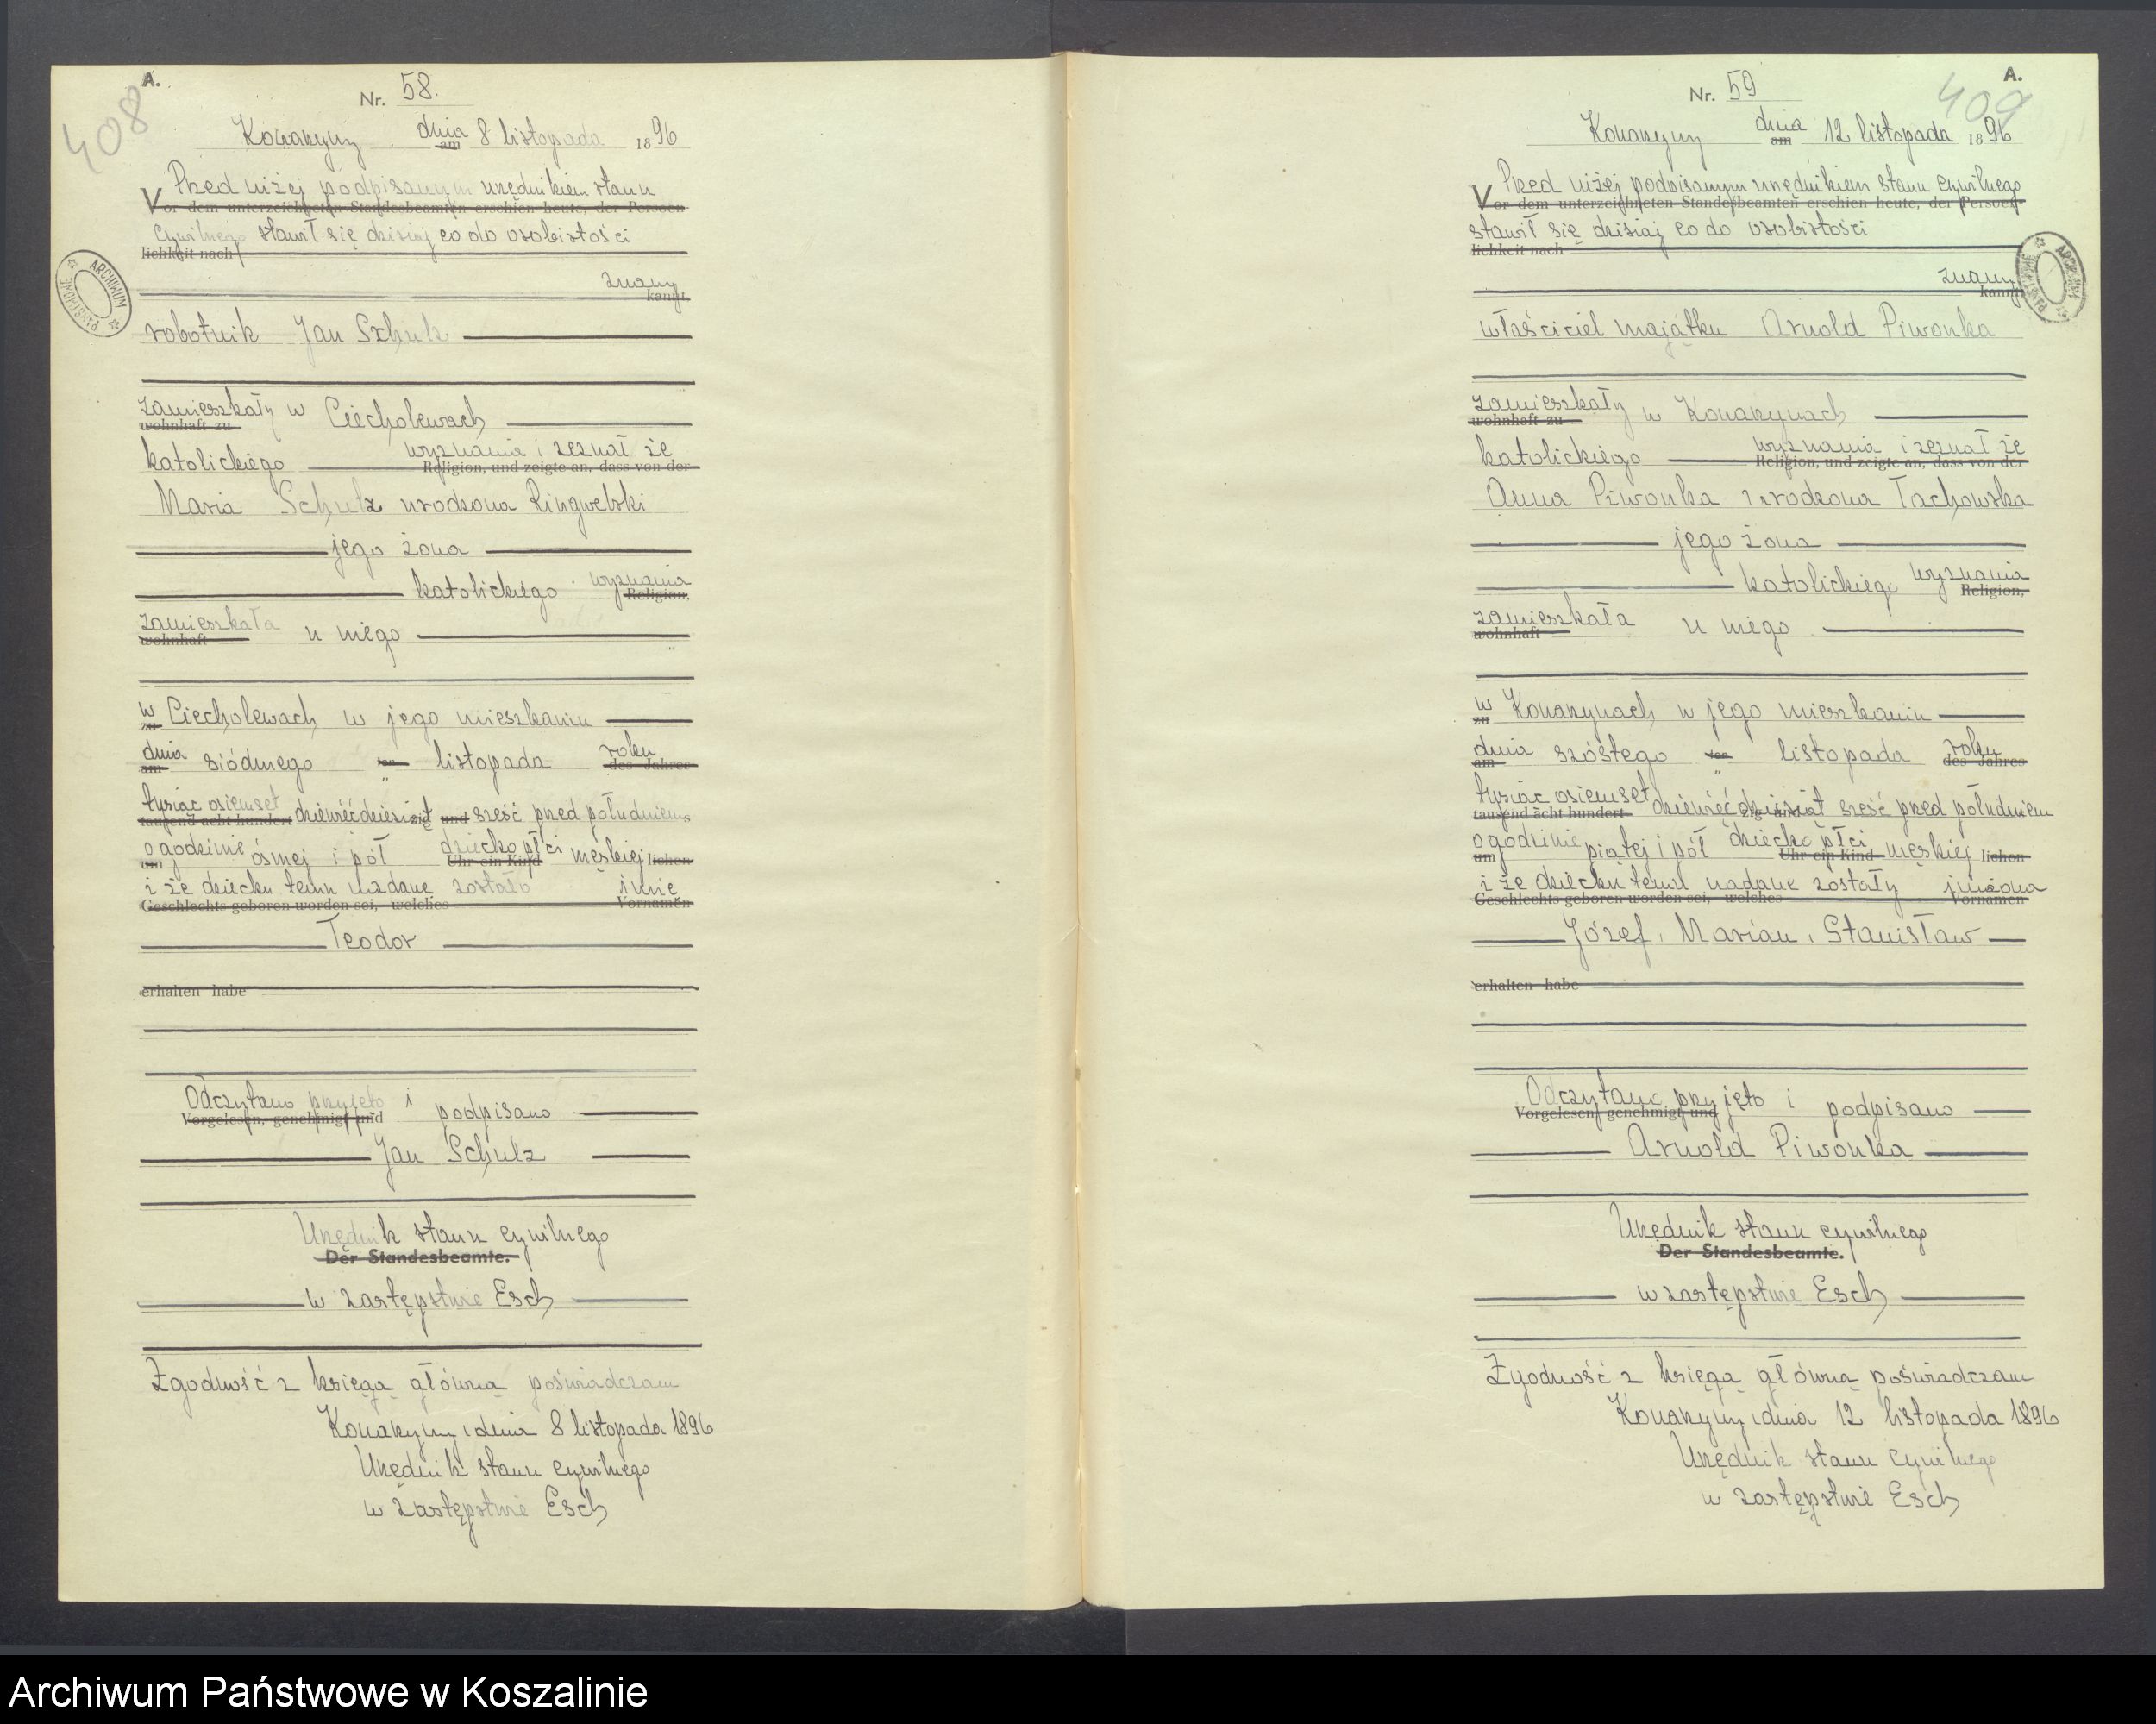 A.
408
Nr. 58.
Konarzyny dnia am 8 listopada 1896
Przed niżej podpisanym urzędnikiem stanu
Vor dem unterzeichneten Standesbeamten erschien heute, der Persoen
cywilnego stawił się dzisiaj co do osobistości
lichkeit nach
znany
kannt,
robotnik Jan Schulz
zamieszkały w Ciecholewach
wohnhaft zu
katolickiego wyznania i zeznał że
Religion, und zeigte an, dass von der
Maria Schulz urodzona Ringwelski
jego żona
katolickiego wyznania
Religion,
zamieszkała u niego
wohnhaft
w Ciecholewach w jego mieszkaniu
zu
dnia siódmego ten listopada roku
am des Jahres
tysiąc osiemset dziewięćdziesiąt und sześć przed południem
tausend acht hundert
o godzinie ósmej i pół dziecko płci męskiej lichen
um Uhr ein Kind
i że dziecku temu nadane zostało imię
Geschlechts geboren worden sei, welches Vornamen
Teodor
erhalten habe
Odczytano przyjęto i podpisano
Vorgelesen, genehmigt und
Jan Schulz
Urzędnik stanu cywilnego
Der Standesbeamte.
w zastępstwie Esch
Zgodność z księgą główną poświadczam
Konarzyny, dnia 8 listopada 1896
Urzędnik stanu cywilnego
w zastępstwie Esch
A.
409
Nr. 59
Konarzyny dnia am 12 listopada 1896
Przed niżej podpisanym urzędnikiem stanu cywilnego
Vor dem unterzeichneten Standesbeamten erschien heute, der Persoen-
stawił się dzisiaj co do osobistości
lichkeit nach
znany
kannt,
właściciel majątku Arnold Piwonka
zamieszkały w Konarzynach
wohnhaft zu
katolickiego wyznania i zeznał że
Religion, und zeigte an, dass von der
Anna Piwonka urodzona Tachowska
jego żona
katolickiego wyznania
Religion,
zamieszkała u niego
wohnhaft
w Konarzynach w jego mieszkaniu
zu
dnia szóstego ten listopada roku
am des Jahres
tysiąc osiemset dziewięćdziesiąt sześć przed południem
tausend acht hundert
o godzinie piątej i pół dziecko płci męskiej lichen
um Uhr ein Kind
i że dziecku temu nadane zostały imiona
Geschlechts geboren worden sei, welches Vornamen
Józef, Marian, Stanisław
erhalten habe
Odczytano przyjęto i podpisano
Vorgelesen, genehmigt und
Arnold Piwonka
Urzędnik stanu cywilnego
Der Standesbeamte.
w zastępstwie Esch
Zgodność z księgą główną poświadczam
Konarzyny, dnia 12 listopada 1896
Urzędnik stanu cywilnego
w zastępstwie Esch
ARCHIWUM PAŃSTWOWE
ARCHIWUM PAŃSTWOWE
Archiwum Państwowe w Koszalinie